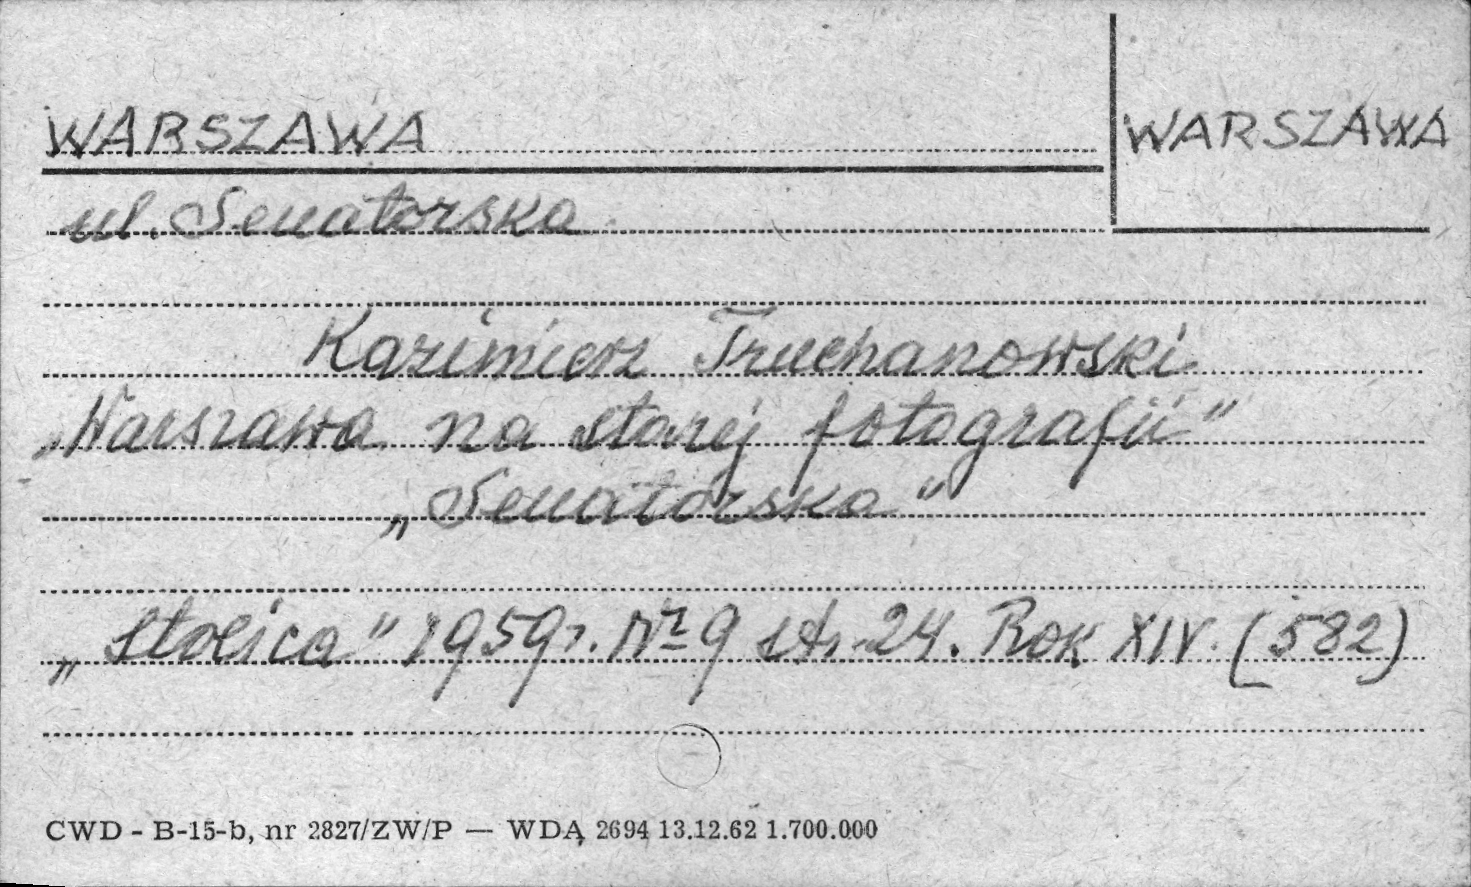 WARSZAWA
WARSZAWA
ul. Senatorska
Kazimierz Truchanowski
„Warszawa na starej fotografii”
„Senatorska”
„Stolica” 1959r. Nr 9 str. 24. Rok XIV. (582)
CWD - B-15-b, nr 2827/ZW/P — WDA 2694 13.12.62 1.700.000